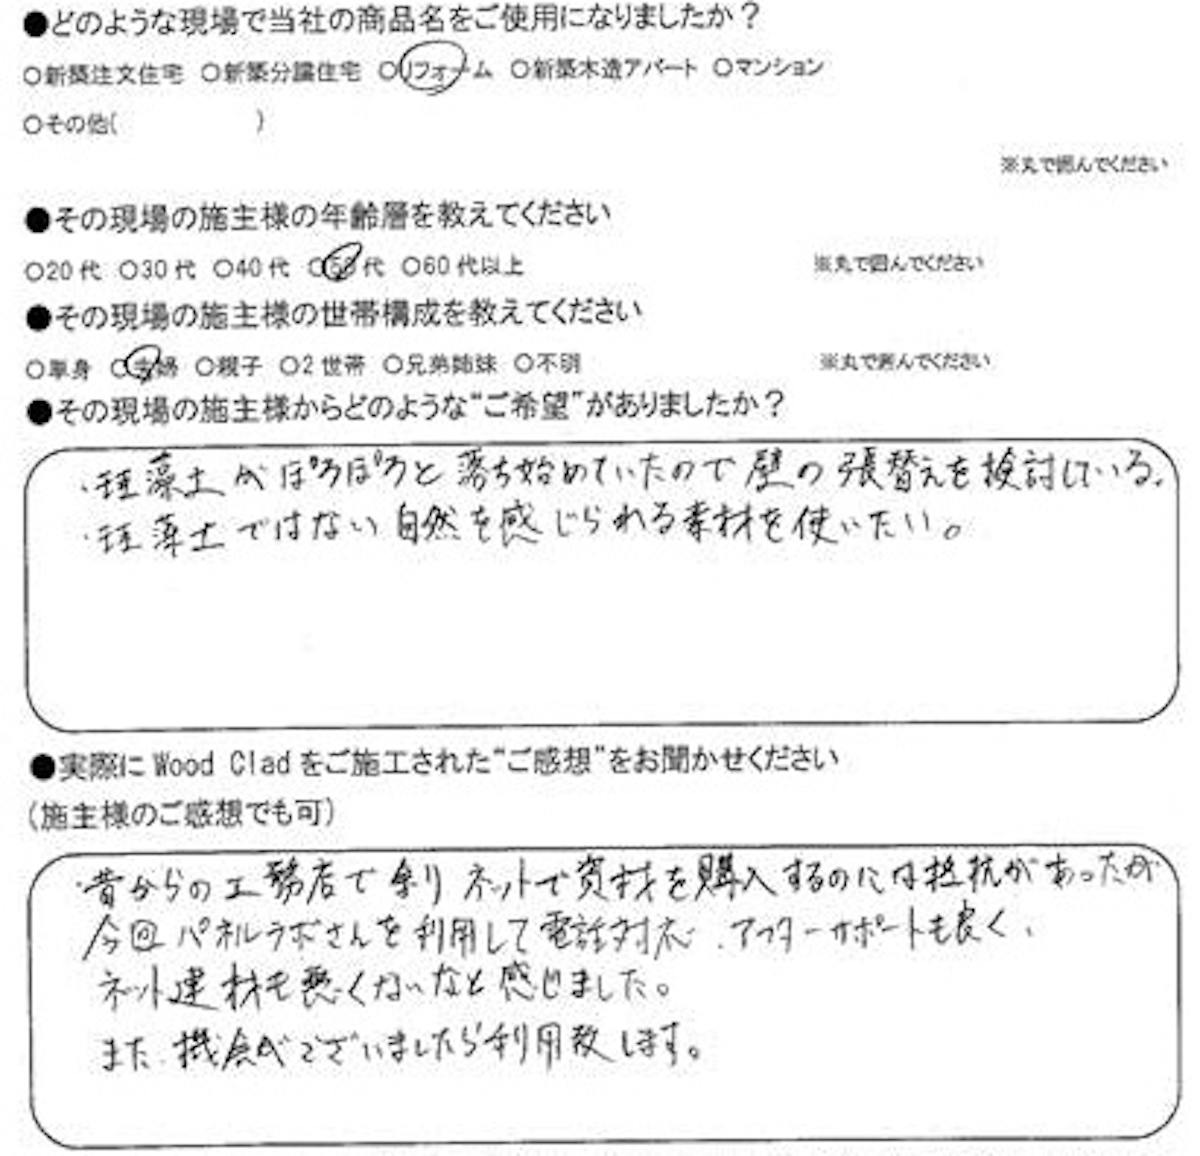 ●どのような現場で当社の商品名をご使用になりましたか？
○新築注文住宅 ○新築分譲住宅 ○リフォーム ○新築木造アパート ○マンション
○その他( )
※丸で囲んでください
●その現場の施主様の年齢層を教えてください
○20代 ○30代 ○40代 ○50代 ○60代以上 ※丸で囲んでください
●その現場の施主様の世帯構成を教えてください
○単身 ○夫婦 ○親子 ○2世帯 ○兄弟姉妹 ○不明 ※丸で囲んでください
●その現場の施主様からどのような“ご希望”がありましたか？
・珪藻土がぽろぽろと落ち始めていたので壁の張替えを検討している。
・珪藻土ではない自然を感じられる素材を使いたい。
●実際にWood Cladをご施工された“ご感想”をお聞かせください
(施主様のご感想でも可)
・昔からの工務店で余りネットで資材を購入するのには抵抗があったが
今回パネルラボさんを利用して電話対応、アフターサポートも良く、
ネット建材も悪くないなと感じました。
また、機会がございましたら利用致します。